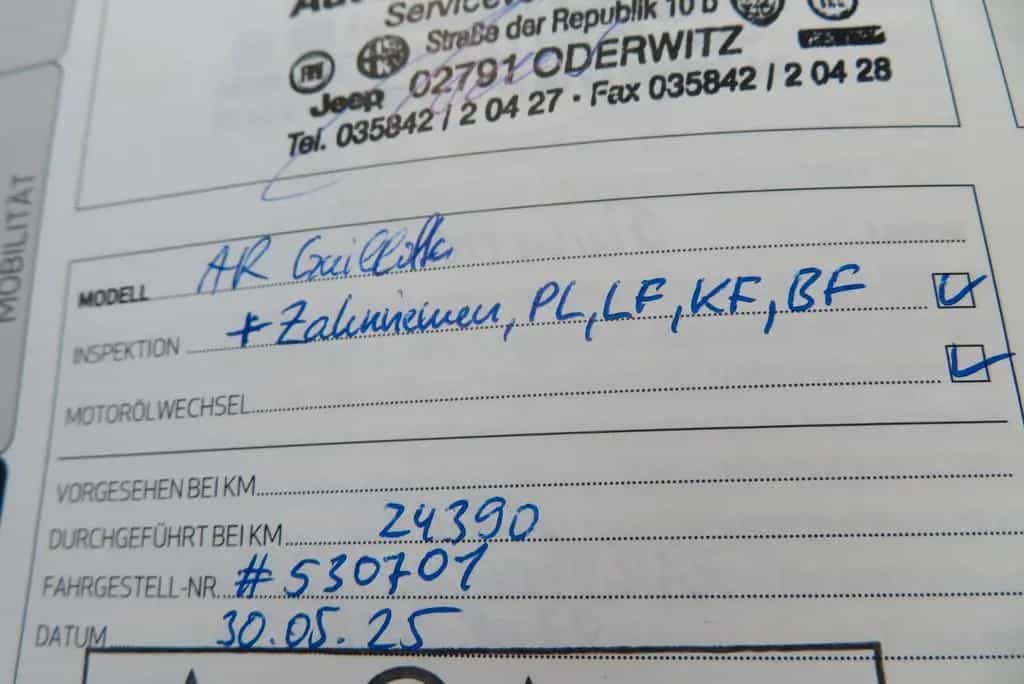 Straße der Republik 10 b
FIAT
02791 ODERWITZ
Jeep
Tel. 035842 / 2 04 27 · Fax 035842 / 2 04 28
MOBILITÄT
MODELL AR Guilietta
INSPEKTION + Zahnriemen, PL, LF, KF, BF
MOTORÖLWECHSEL
VORGESEHEN BEI KM
DURCHGEFÜHRT BEI KM 24390
FAHRGESTELL-NR. #530701
DATUM 30.05.25